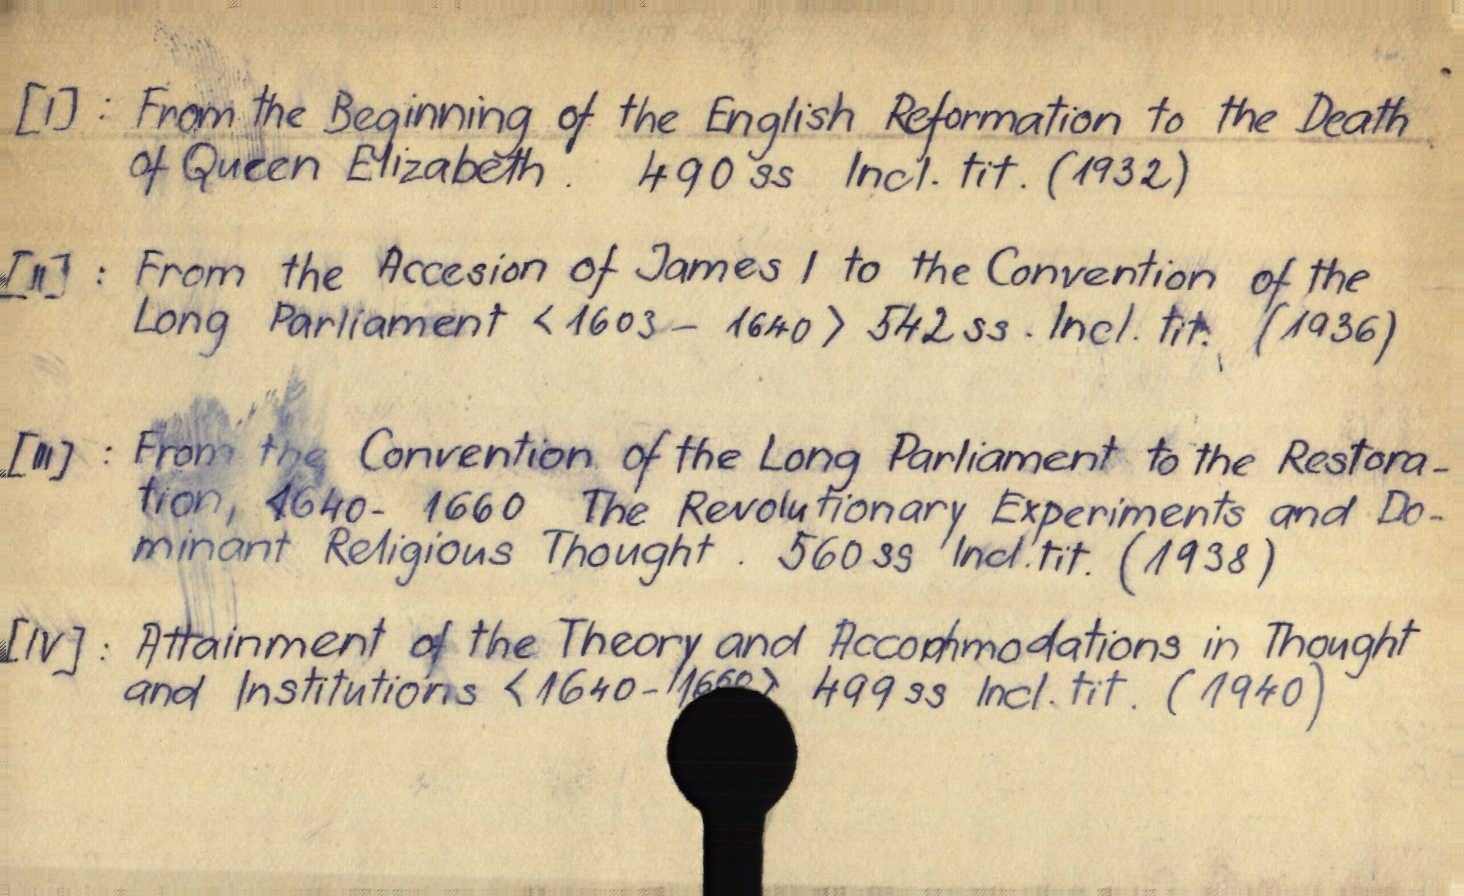 [I] : From the Beginning of the English Reformation to the Death
of Queen Elizabeth. 490 ss Incl. tit. (1932)
[II] : From the Accesion of James I to the Convention of the
Long Parliament <1603 - 1640> 542 ss. Incl. tit. (1936)
[III] : From the Convention of the Long Parliament to the Restora-
tion, 1640- 1660 The Revolutionary Experiments and Do-
minant Religious Thought. 560 ss Incl. tit. (1938)
[IV] : Attainment of the Theory and Accommodations in Thought
and Institutions <1640-1660> 499 ss Incl. tit. (1940)